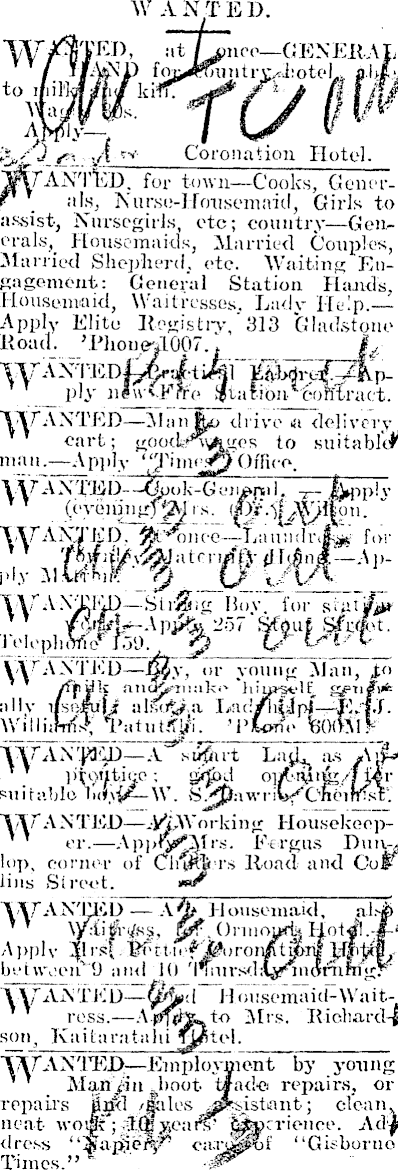 WANTED.
WANTED, at once—GENERAL
HAND for country hotel, able
to milk and kill.
Wages
Apply—
Coronation Hotel.
WANTED, for town—Cooks, Gener-
als, Nurse-Housemaid, Girls to
assist, Nursegirls, etc; country—Gen-
erals, Housemaids, Married Couples,
Married Shepherd, etc. Waiting En-
gagement: General Station Hands,
Housemaid, Waitresses, Lady Help.—
Apply Elite Registry, 313 Gladstone
Road. 'Phone 1007.
WANTED—Practical Laborer.—Ap-
ply new Fire Station contract.
WANTED—Man to drive a delivery
cart; good wages to suitable
man.—Apply "Times" Office.
WANTED—Cook-General. — Apply
(evening) Mrs. (Dr.) Wilson.
WANTED, at once—Laundress for
Townley Maternity Home.—Ap-
ply Matron.
WANTED—Strong Boy, for station
Apply 257 Stout Street.
Telephone 159.
WANTED—Boy, or young Man, to
milk and make himself gener-
ally useful; also a Ladyhelp.—E. J.
Williams, Patutahi. 'Phone 600M.
WANTED—A smart Lad, as Ap-
prentice; good opening for
suitable boy.—W. S. Lawrie, Chemist.
WANTED—A Working Housekeep-
er.—Apply Mrs. Fergus Dun-
lop, corner of Childers Road and Col-
lins Street.
WANTED — A Housemaid, also
Waitress, for Ormond Hotel.—
Apply Mrs. Pettie, Coronation Hotel,
between 9 and 10 Thursday morning.
WANTED—Good Housemaid-Wait-
ress.—Apply to Mrs. Richard-
son, Kaitaratahi Hotel.
WANTED—Employment by young
Man in boot trade repairs, or
repairs and sales assistant; clean,
neat work; 10 years' experience. Ad-
dress "Napier," care of "Gisborne
Times."